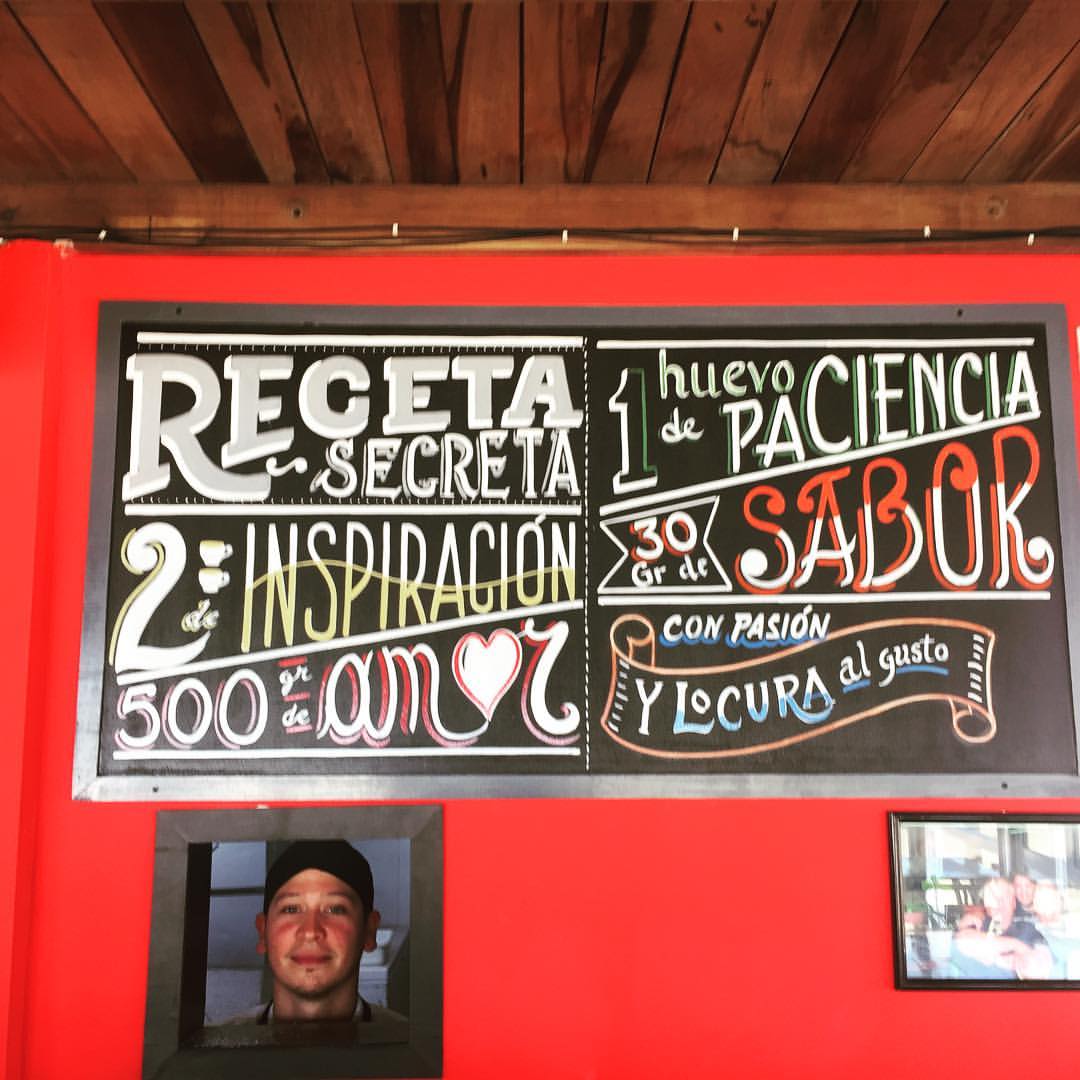 RECETA
SECRETA
2 de INSPIRACIÓN
500 gr de amor
1 huevo de PACIENCIA
30 Gr de SABOR
CON PASIÓN
Y LOCURA al gusto